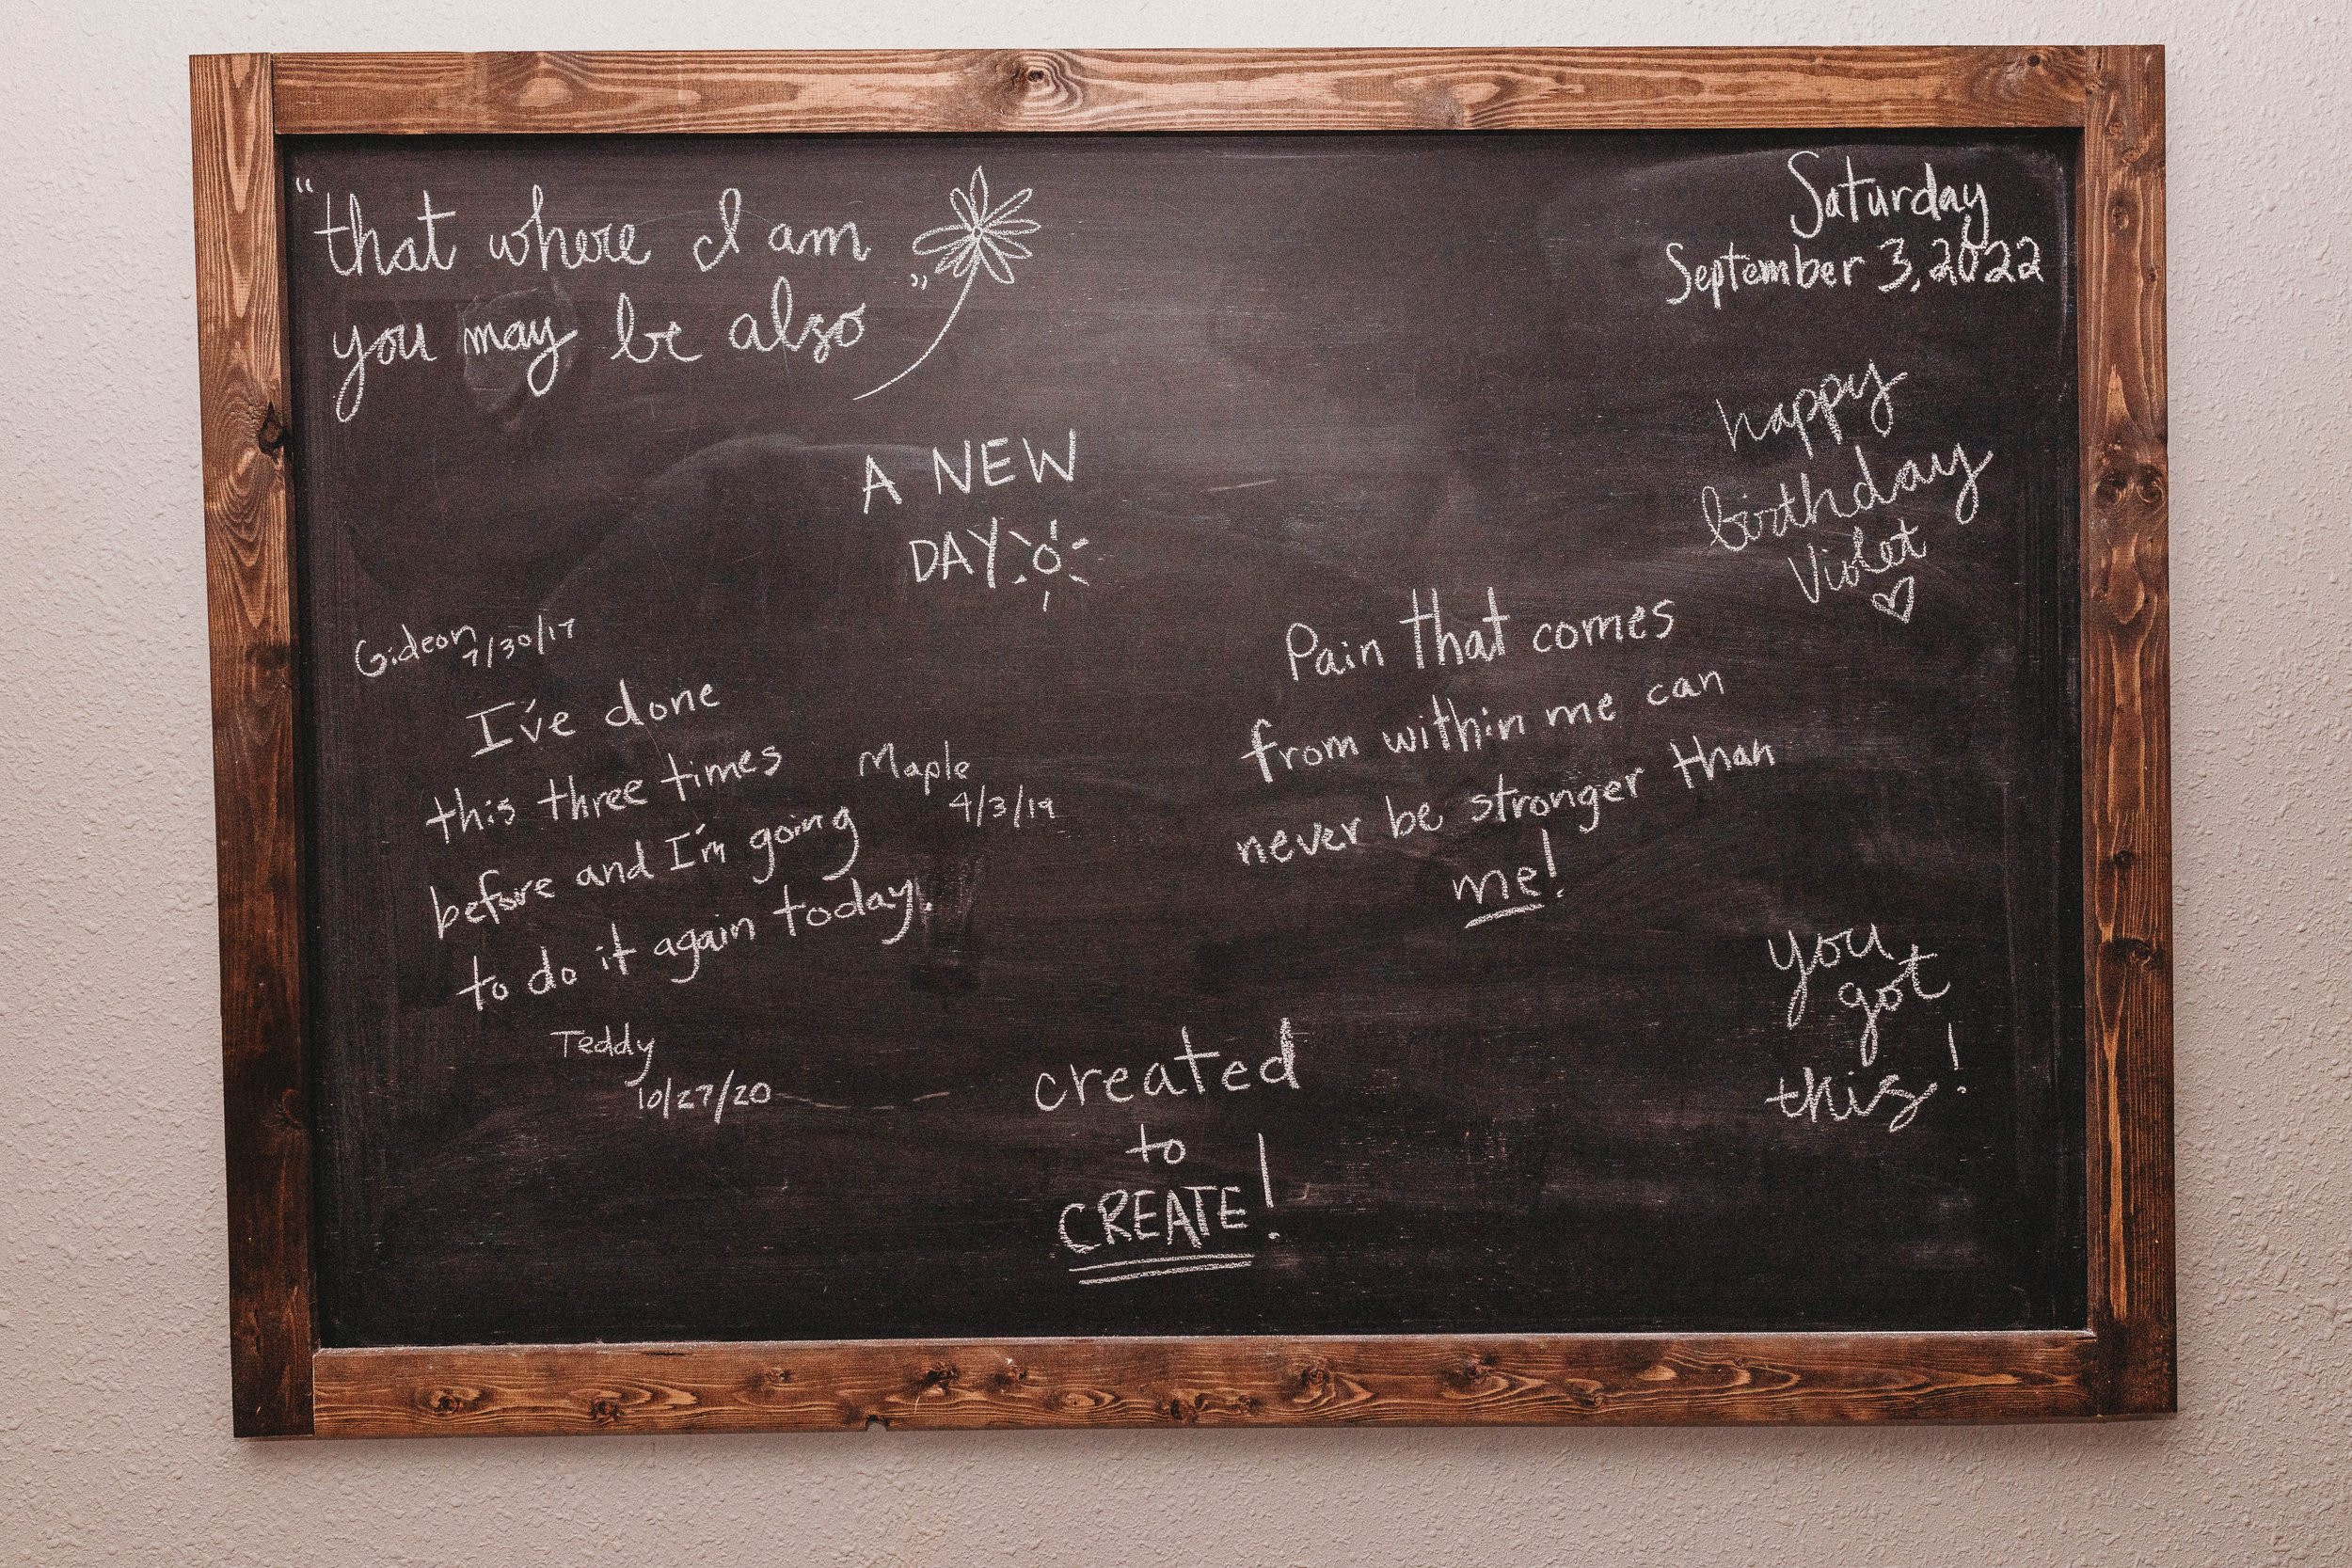 "that where I am
you may be also"
Saturday
September 3, 2022
happy
birthday
Violet
A NEW
DAY
Gideon
7/30/17
I've done
this three times
before and I'm going
to do it again today.
Maple
4/3/19
Teddy
10/27/20
Pain that comes
from within me can
never be stronger than
me!
you
got
this!
created
to
CREATE!